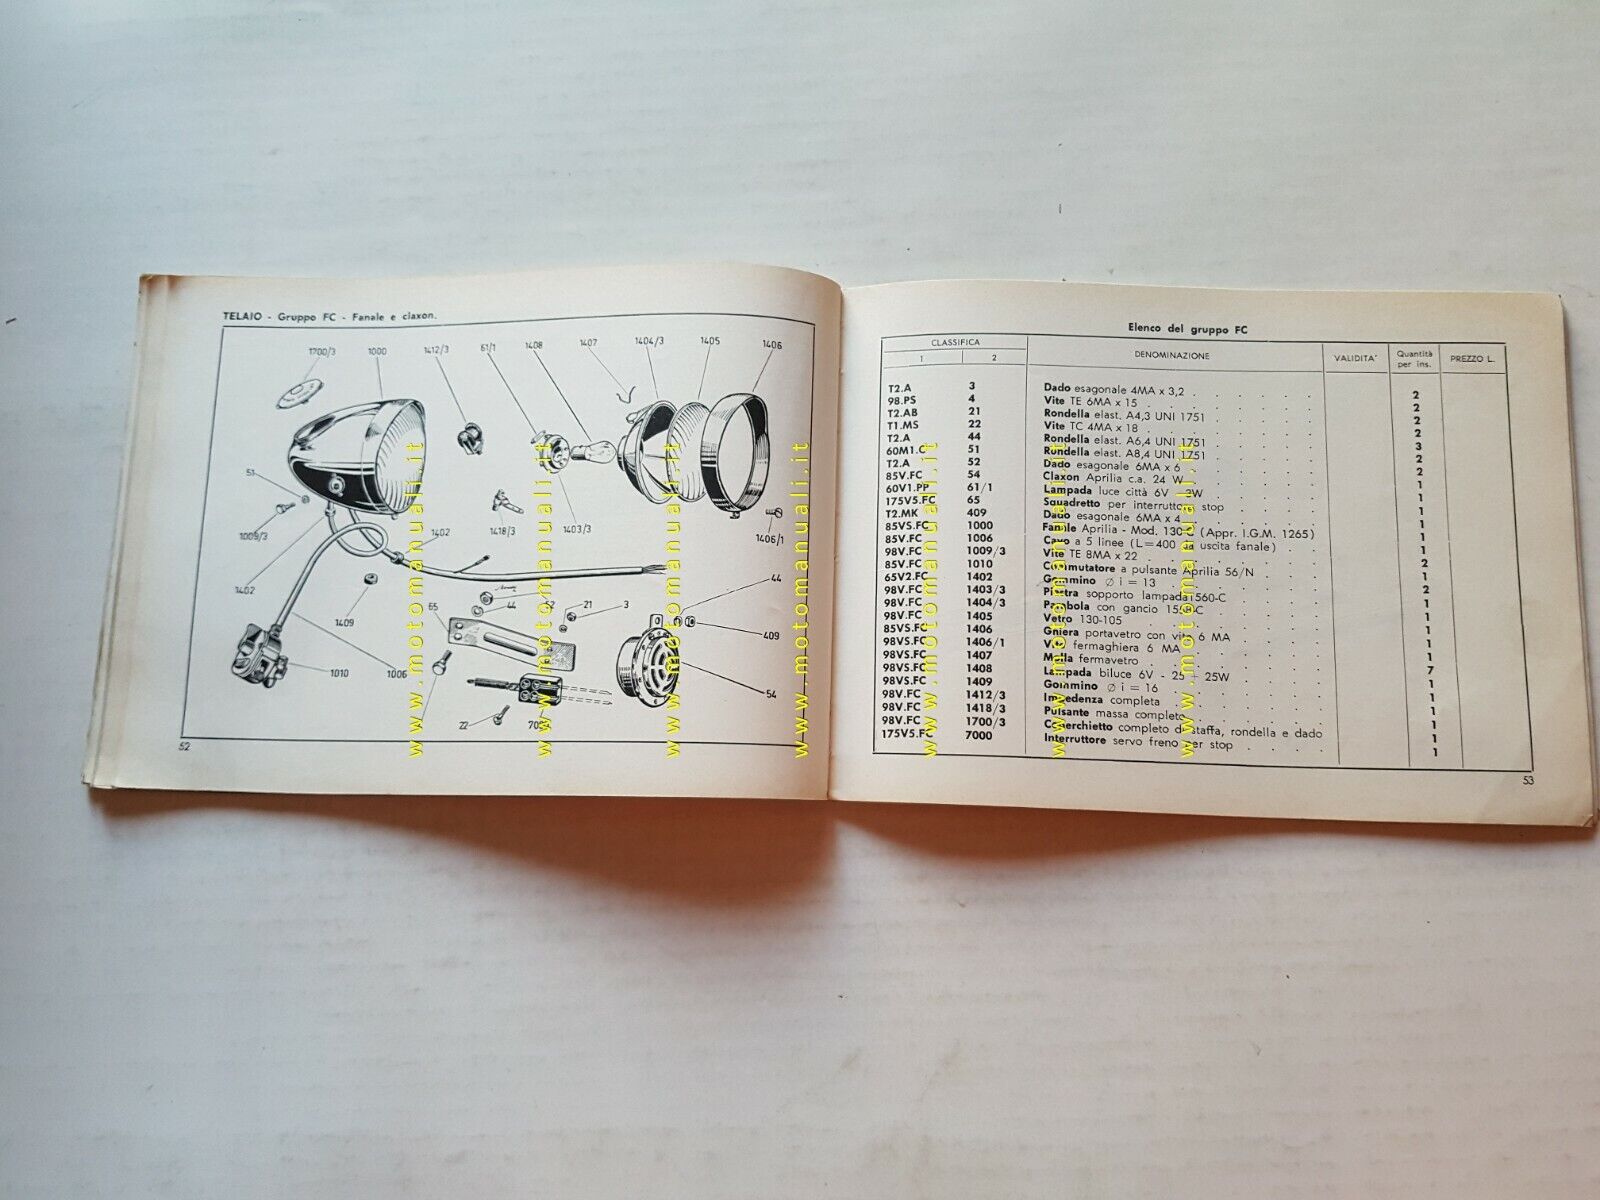 TELAIO - Gruppo FC - Fanale e claxon.
1700/3 1000 1412/3 61/1 1408 1407 1404/3 1405 1406
51
1009/3
1402
1418/3
1403/3
1406/1
1402
1409
65
44
52
21
3
44
409
1010
1006
22
54
52
Elenco del gruppo FC
CLASSIFICA
1 2 DENOMINAZIONE VALIDITA' Quantità per ins. PREZZO L.
T2.A 3 Dado esagonale 4MA x 3,2 2
98.PS 4 Vite TE 6MA x 15 2
T2.AB 21 Rondella elast. A4,3 UNI 1751 2
T1.MS 22 Vite TC 4MA x 18 2
T2.A 44 Rondella elast. A6,4 UNI 1751 3
60M1.C 51 Rondella elast. A8,4 UNI 1751 2
T2.A 52 Dado esagonale 6MA x 6 2
85V.FC 54 Claxon Aprilia c.a. 24 W 1
60V1.PP 61/1 Lampada luce città 6V - 3W 1
175V5.FC 65 Squadretto per interruttore stop 1
T2.MK 409 Dado esagonale 6MA x 4 1
85VS.FC 1000 Fanale Aprilia - Mod. 130 (Appr. I.G.M. 1265) 1
85V.FC 1006 Cavo a 5 linee (L=400 da uscita fanale) 1
98V.FC 1009/3 Vite TE 8MA x 22 2
85V.FC 1010 Commutatore a pulsante Aprilia 56/N 1
65V2.FC 1402 Gommino ∅ i = 13 2
98V.FC 1403/3 Piastra sopporto lampada 1560-C 1
98V.FC 1404/3 Parabola con gancio 1558-C 1
98V.FC 1405 Vetro 130-105 1
85VS.FC 1406 Ghiera portavetro con vite 6 MA 1
98VS.FC 1406/1 Vite fermaghiera 6 MA 1
98VS.FC 1407 Molla fermavetro 7
98VS.FC 1408 Lampada biluce 6V - 25 - 25W 1
98VS.FC 1409 Gommino ∅ i = 16 1
98V.FC 1412/3 Impedenza completa 1
98V.FC 1418/3 Pulsante massa completo 1
98V.FC 1700/3 Coperchietto completo di staffa, rondella e dado 1
175V5.FC 7000 Interruttore servo freno per stop 1
53
www.motomanuali.it
www.motomanuali.it
www.motomanuali.it
www.motomanuali.it
www.motomanuali.it
www.motomanuali.it
www.motomanuali.it